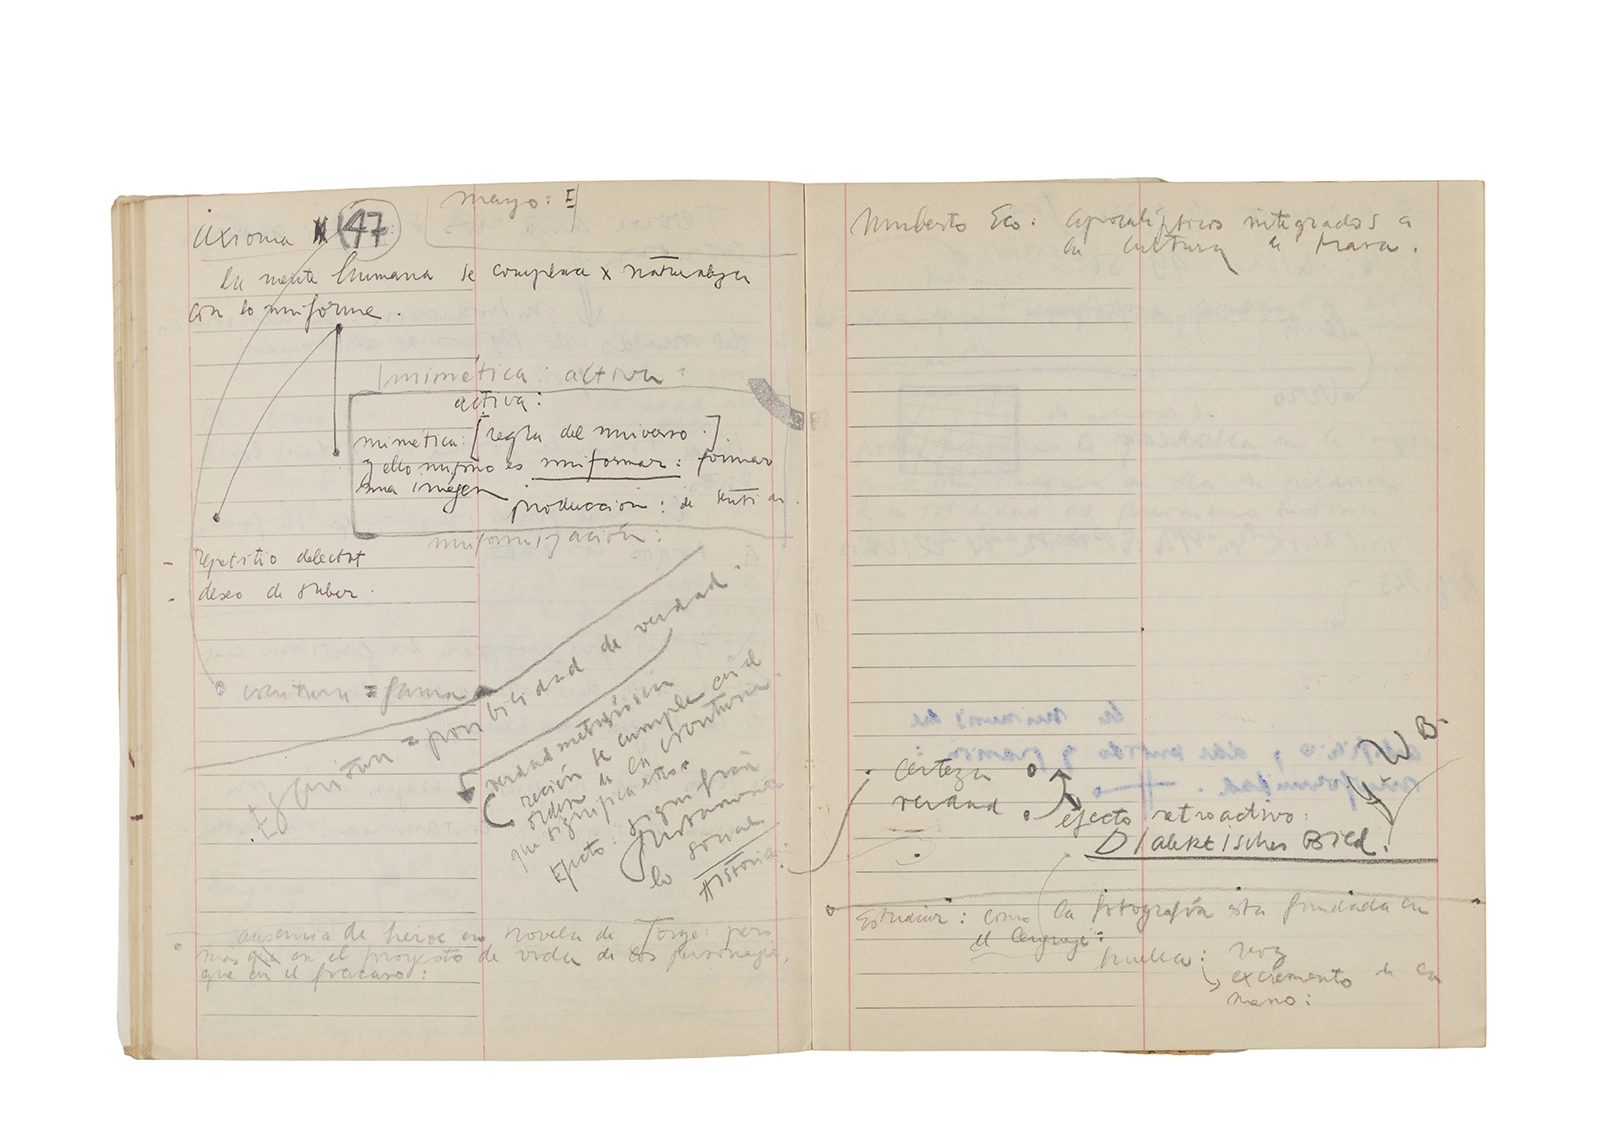 mayo: E
axioma 47
la mente humana se complace x naturaleza
con lo uniforme.
mimética: activa:
activa:
mimética: [regla del universo.]
y ello mismo es uniformar: formar
una imagen
producción: de
uniformización:
- repetitio delectat
- deseo de saber.
escritura = fama
Escritura = posibilidad de verdad.
verdad
se cumple en el
orden de la escritura
que significa esto:
Efecto: significación
lo social
Historia:
ausencia de héroe en novela de Jorge: pero
mas que en el proyecto de vida de los personajes,
que en el fracaso:
Umberto Eco: apocalípticos integrados a
la cultura d masa.
certeza
verdad
efecto retroactivo:
Dialektisches Bild.
W B-
Estudiar: como la fotografía está fundada en
el lenguaje:
huella: voz
excremento de la
mano: